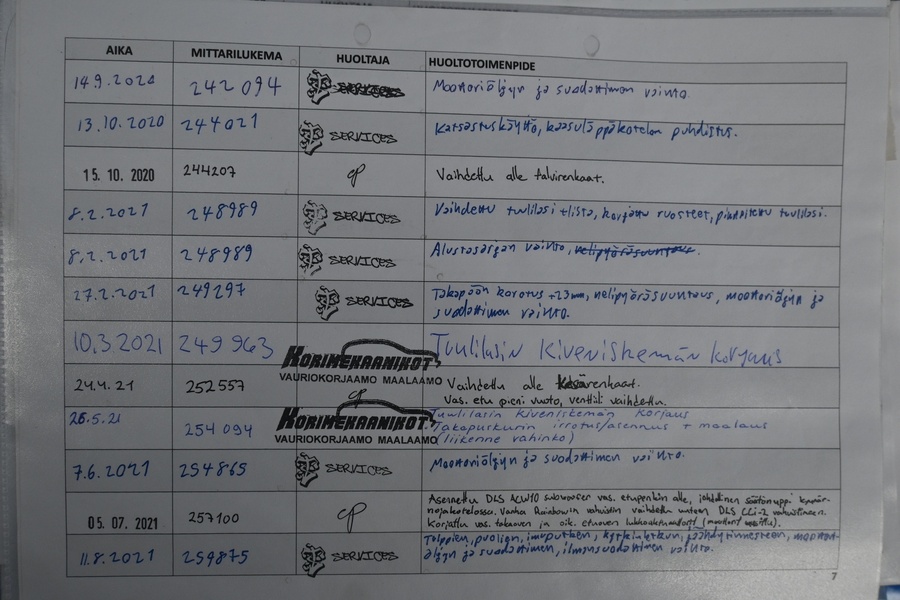 AIKA MITTARILUKEMA HUOLTAJA HUOLTOTOIMENPIDE
14.9.2020 242 094 SERVICES Moottoriöljyn ja suodattimen vaihto.
13.10.2020 244021 SERVICES Katsastuskäyttö, kaasuläppäkotelon puhdistus.
15. 10. 2020 244207 Vaihdettu alle talvirenkaat.
8.2.2021 248989 SERVICES Vaihdettu tuulilasi + lista, korjattu ruosteet, tuulilasi.
8.2.2021 248989 SERVICES Alustasarjan vaihto, nelipyöräsuuntaus.
27.2.2021 249297 SERVICES Takapään korotus +23mm, nelipyöräsuuntaus, moottoriöljyn ja
suodattimen vaihto.
10.3.2021 249 963 KORIMEKAANIKOT Tuulilasin kiveniskemän korjaus
VAURIOKORJAAMO MAALAAMO
24.4.21 252557 Vaihdettu alle kesärenkaat.
Vas. etu pieni vuoto, venttiili vaihdettu.
26.5.21 254 094 KORIMEKAANIKOT Tuulilasin kiveniskemän korjaus
Takapuskurin irrotus/asennus + maalaus
VAURIOKORJAAMO MAALAAMO (liikenne vahinko)
7.6.2021 254865 SERVICES Moottoriöljyn ja suodattimen vaihto.
05. 07. 2021 257100 Asennettu DLS ACW10 subwoofer vas. etupenkin alle, johdellinen säätönuppi
nojakotelossa. Vanha Rainbowin vahvistin vaihdettu uuteen DLS vahvistimeen.
Korjattu vas. takaoven ja oik. etuoven
11.8.2021 259875 SERVICES Tulppien, puolien, imuputken, jäähdytinnesteen, moottori-
öljyn ja suodattimen, ilmansuodattimen vaihto.
7